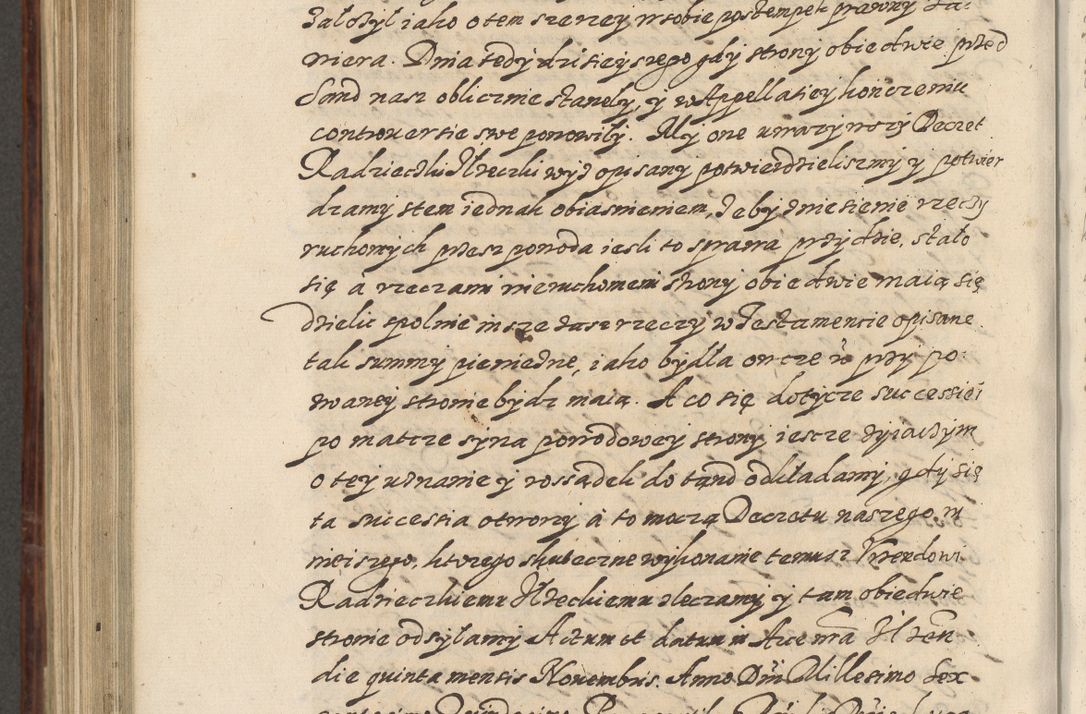 załozył iako o tem szerzey w sobie postempek prawny za-
wiera. Dnia tedy dzisieyszego gdy strony obiedwie przed
Sąnd nasz oblicznie stanęły, y w Appellatiey kończeniu
controuersie swe ponowiły. My one uwazywszy Decret
Radziecki Ilzeczki wyz opisany potwierdzieliszmy y potwier
dzamy s tem iednak obiasnieniem, zeby zniesienie rzeczy
ruchomych przesz powoda iesli to sprawa przydzie, stało
się a rzeczami nieruchomemi strony obiedwie maią się
dzielic spolnie insze zasz rzeczy w Testamencie opisane
tak summy pieniedzne, iako bydła owcze u przy po-
zwaney stronie bydz maią. A co się dotycze successiei
po matcze syna powodowey strony iescze zyiaczym
o tey uznanie y rossądek do tąnd odkładamy, gdy się
ta successia otworzy a to moczą Decretu naszego ni
nieiszego, ktorego skuteczne wykonanie temusz Vrzendowi
Radzieczkiemu Ilzeckiemu zleczamy y tam obiedwie
stronie odsyłamy Actum et datum in Arce nra Ilzen
die quinta mensis Nouembris. Anno Dni Millesimo Sex-